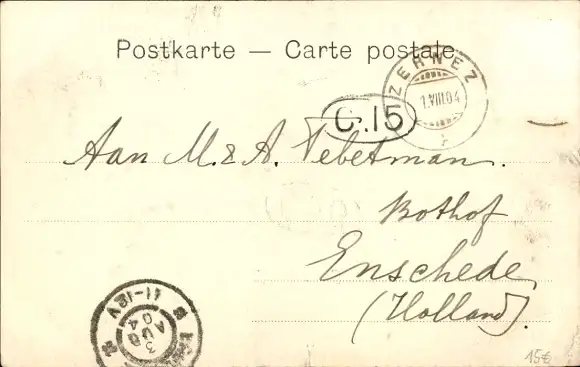 Postkarte — Carte postale
ZERNEZ
1.VIII.04
C.15
Aan M. & A. Tebetman.
Bothof
Enschede
(Holland).
11-12V
3
AUG
04
15€